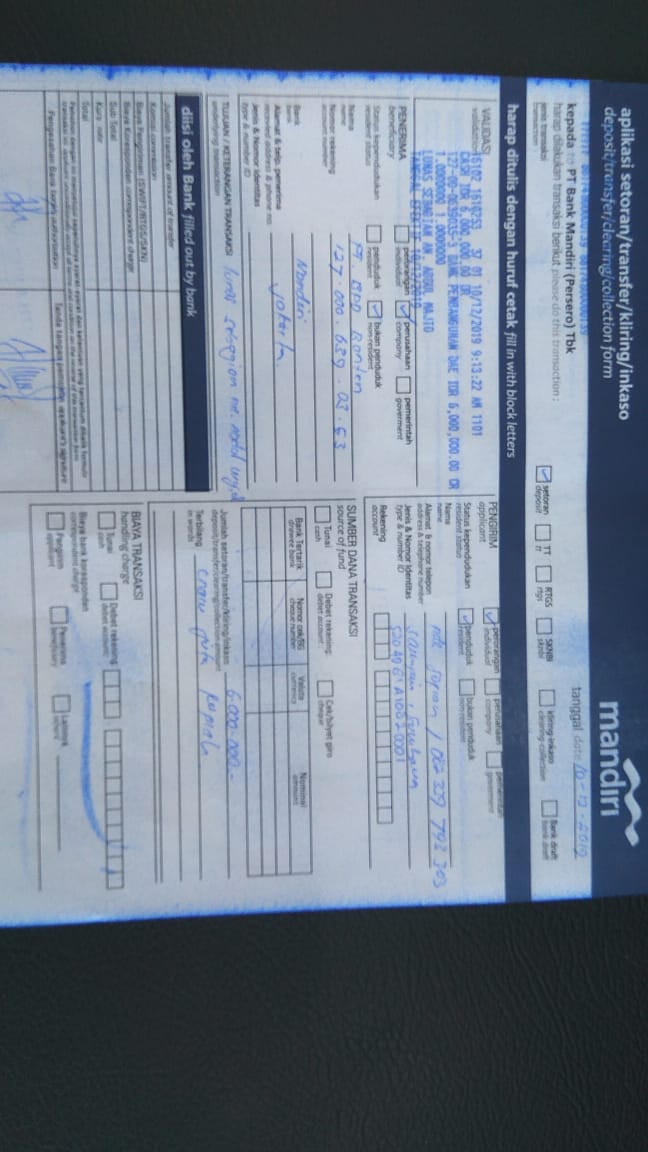 aplikasi setoran/transfer/kliring/inkaso
deposit/transfer/clearing/collection form
mandiri
kepada to PT Bank Mandiri (Persero) Tbk
tanggal date 10-12-2019
harap dilakukan transaksi berikut please do this transaction :
jenis transaksi
transaction
setoran
deposit
TT
tt
RTGS
rtgs
SKNBI
sknbi
kliring-inkaso
clearing-collection
Bank draft
bank draft
harap ditulis dengan huruf cetak fill in with block letters
VALIDASI
validation
37 01 10/12/2019 9:13:22 AM 1101
CASH IDR 6,000,000.00 DR
BANK PEMBANGUNAN DAE IDR 6,000,000.00 CR
1.0000000 1.0000000
LUNAS SEBAGIAN AN. ABDUL MAJID
PENERIMA
beneficiary
perorangan
individual
perusahaan
company
pemerintah
goverment
Status kependudukan
resident status
penduduk
resident
bukan penduduk
non-resident
Nama
name
PT. BPD Banten
Nomor rekening
account number
Bank
bank
Mandiri
Alamat & telp. penerima
address & phone no.
Jakarta
Jenis & Nomor Identitas
type & number ID
TUJUAN / KETERANGAN TRANSAKSI
underlying transaction
lunas sebagian an. Abdul Majid
PENGIRIM
applicant
perorangan
individual
perusahaan
company
pemerintah
goverment
Status kependudukan
resident status
penduduk
resident
bukan penduduk
non-resident
Nama
name
Alamat & nomor telepon
address & telephone number
Jenis & Nomor Identitas
type & number ID
Rekening
account
SUMBER DANA TRANSAKSI
source of fund
Tunai
cash
Debet rekening:
debet account:
Cek/bilyet giro
cheque
Bank Tertarik
drawee bank
Nomor cek/BG
cheque number
Valuta
currency
Nominal
amount
Jumlah setoran/transfer/kliring/inkaso
deposit/transfer/clearing/collection amount
6.000.000.-
Terbilang
in words
enam juta rupiah
diisi oleh Bank filled out by bank
Jumlah transfer amount of transfer
Komisi commission
Biaya Pengiriman (SWIFT/RTGS/SKN)
Biaya Koresponden correspondent charge
Sub Total
Kurs rate
Total
BIAYA TRANSAKSI
handling charge
Tunai
cash
Debet rekening:
debet account:
Biaya bank koresponden
correspondent charge
Pengirim
applicant
Penerima
beneficiary
Lainnya
others
Pengesahan Bank bank's authorization
Tanda tangan pemohon applicant's signature